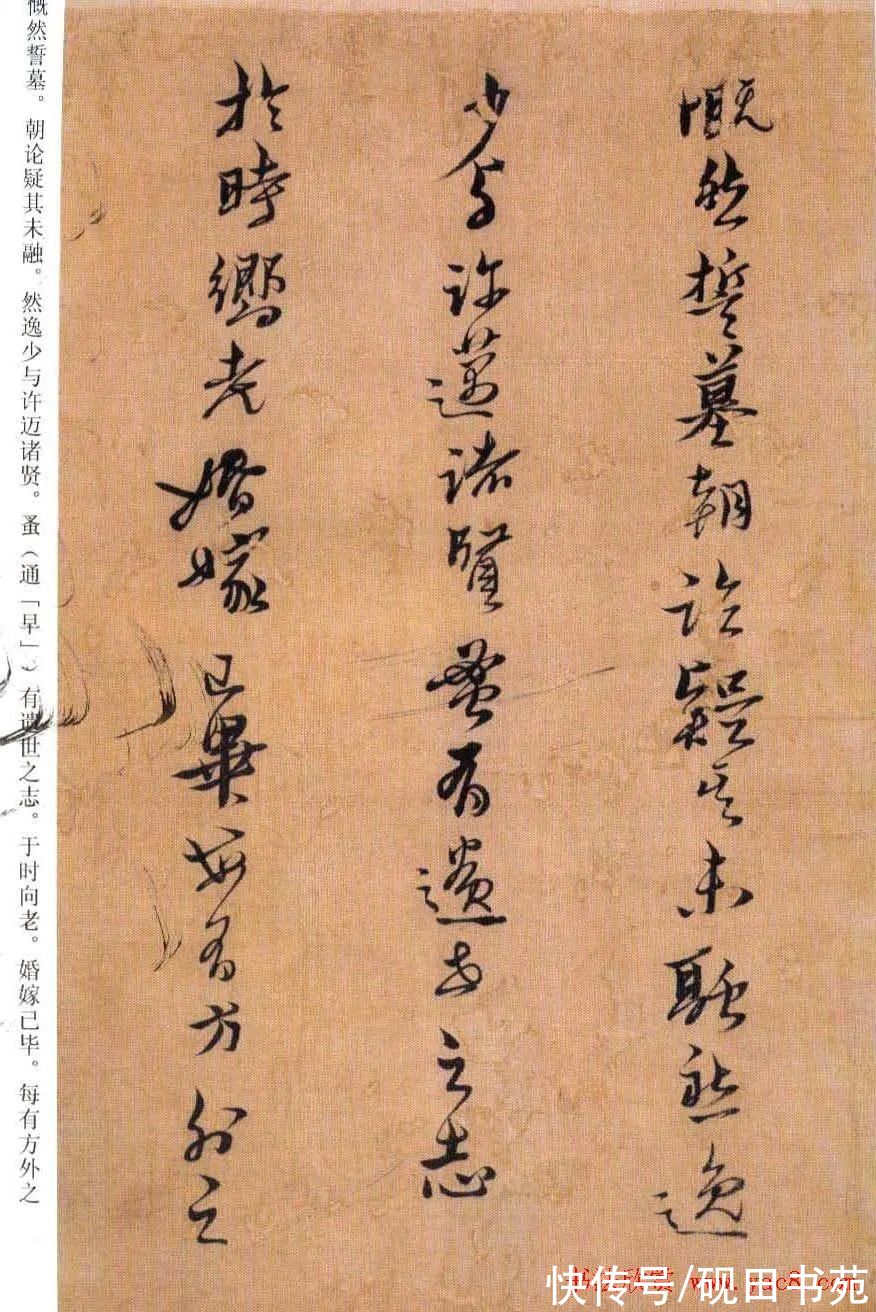 慨然誓墓朝論疑其未融然逸
少与許邁諸賢蚤有遺世之志
於時嚮老婚嫁已畢每有方外之
慨然誓墓。朝论疑其未融。然逸少与许迈诸贤。蚤（通「早」）有遗世之志。于时向老。婚嫁已毕。每有方外之
快传号/砚田书苑